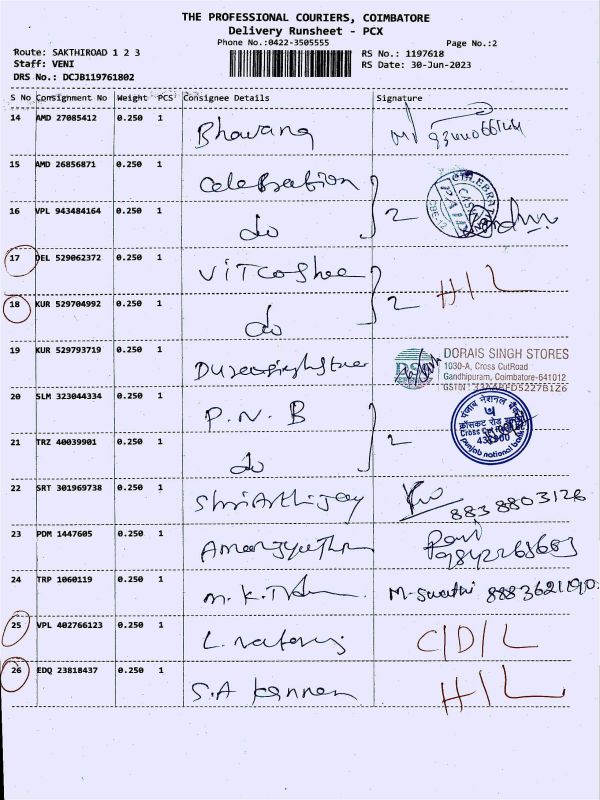 THE PROFESSIONAL COURIERS, COIMBATORE
Delivery Runsheet - PCX
Phone No.:0422-3505555 Page No.:2
Route: SAKTHIROAD 1 2 3 RS No.: 1197618
Staff: VENI RS Date: 30-Jun-2023
DRS No.: DCJB119761802
S No Consignment No Weight PCS Consignee Details Signature
14 AMD 27085412 0.250 1 Bhavana
15 AMD 26856871 0.250 1 Celebration
16 VPL 943484164 0.250 1 do 2
17 DEL 529062372 0.250 1 VITCOShee
18 KUR 529704992 0.250 1 do 2 H/L
19 KUR 529793719 0.250 1 DORAIS SINGH STORES
1030-A, Cross CutRoad
Gandhipuram, Coimbatore-641012
GSTIN: 33AABFD5227B1Z6
20 SLM 323044334 0.250 1 P.N.B
पंजाब नेशनल बैंक
क्रॉसकट रोड
Cross Cut
punjab national bank
21 TRZ 40039901 0.250 1 do 2
22 SRT 301969738 0.250 1 8838803126
23 PDM 1447605 0.250 1
24 TRP 1060119 0.250 1 M. Swathi
25 VPL 402766123 0.250 1 C/D/L
26 EDQ 23818437 0.250 1 S.A kannan H/L